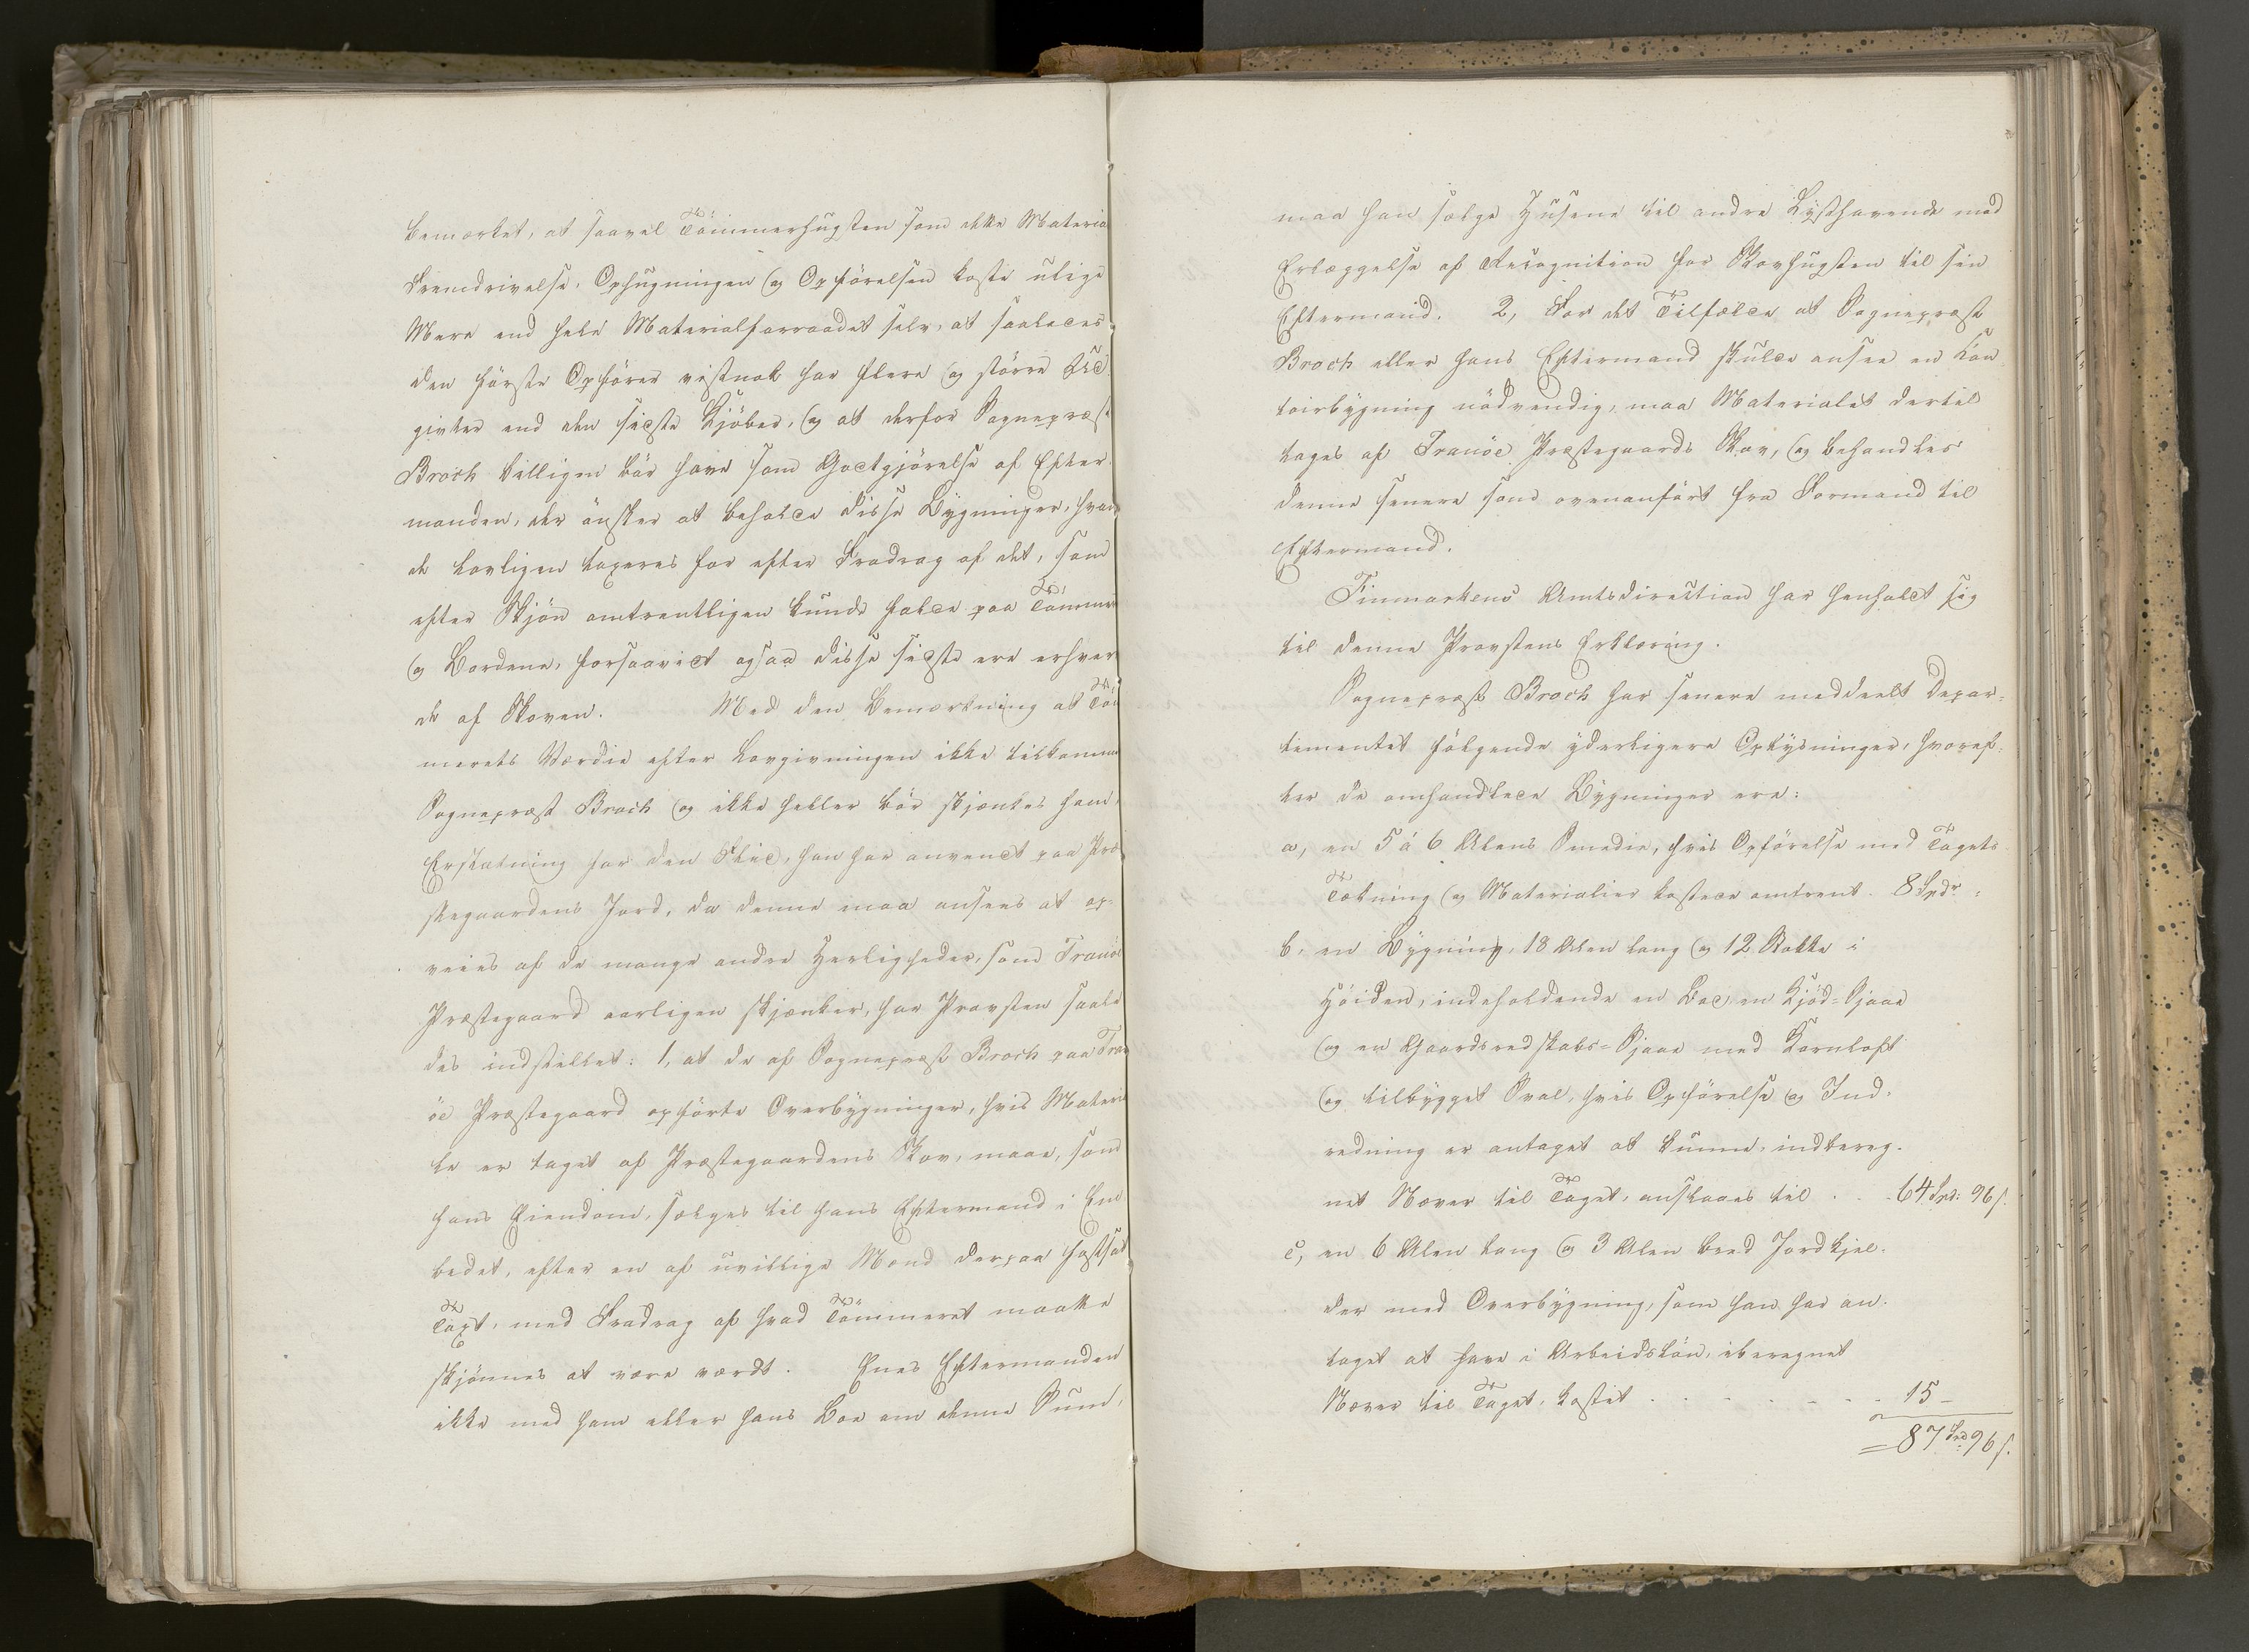 bemærket, at saavel Tömmerhugsten som dette Materia
Fremdrivelse, Ophugningen og Opförelsen koste ulige
Mere end hele Materialforraadet selv, at saaledes
den förste Opförer vistnok har flere og större Ud
givter end den sidste Kjöber, og at derfor Sognepræst
Broch billigen bör have som Godtgjörelse af Efter
manden, der önsker at beholde disse Bygninger, hvad
de lovligen taxeres for efter Fradrag af det, som
efter Skjön omtrentligen kunde falde paa Tömmer
og Bordene, forsaavidt ogsaa disse sidste ere erhver
de af Skoven. Med den Bemærkning at Töm
merets Værdie efter Lovgivningen ikke tilkomme
Sognepræst Broch og ikke heller bör skjænkes ham,
Erstatning for den Flid, han har anvendt paa Præ
stegaardens Jord, da denne maa ansees at op-
veies af de mange andre Herligheder, som Tranöe
Præstegaard aarligen skjænker, har Provsten saale
des indstillet: 1, at de af Sognepræst Broch paa Tran
öe Præstegaard opförte Overbygninger, hvis Materi
le er taget af Præstegaardens Skov, maae, som
hans Eiendom, sælges til hans Eftermand i Em
bedet, efter en af uvillige Mænd derpaa fastsat
Taxt, med Fradrag af hvad Tömmeret maatte
skjönnes at være værdt. Enes Eftermanden
ikke med ham eller hans Boe om denne Sum,
maa han sælge Husene til andre Lysthavende mod
Erlæggelse af Recognition for Skovhugsten til sin
Eftermand. 2, For det Tilfælde at Sognepræst
Broch eller hans Eftermand skulde ansee en Con
toirbygning nödvendig, maa Materialet dertil
tages af Tranöe Præstegaards Skov, og behandles
denne senere som ovenanfört fra Formand til
Eftermand.
Finmarkens Amtsdirection har henholdt sig
til denne Provstens Erklæring.
Sognepræst Broch har senere meddeelt Depar-
tementet fölgende yderligere Oplysninger, hvoref-
ter de omhandlede Bygninger ere:
a, en 5 á 6 Alens Smedie, hvis Opförelse med Tagets
Tækning og Materialier kostede omtrent 8 Spdr:
b, en Bygning, 18 Alen lang og 12 Stokke i
Höiden, indeholdende en Bod en Kjöd-Sjaae
og en Gaardsredskabs-Sjaae med Kornloft
og tilbygget Sval, hvis Opförelse og Ind-
redning er antaget at kunne, indbereg-
net Næver til Taget, anslaaes til . . . 64 Spd: 96 s.
c, en 6 Alen lang og 3 Alen bred Jordkjel-
der med Overbygning, som han har an-
taget at have i Arbeidslön, iberegnet
Næver til Taget, kostet . . . . . . 15 -
= 87 Spd 96 s.